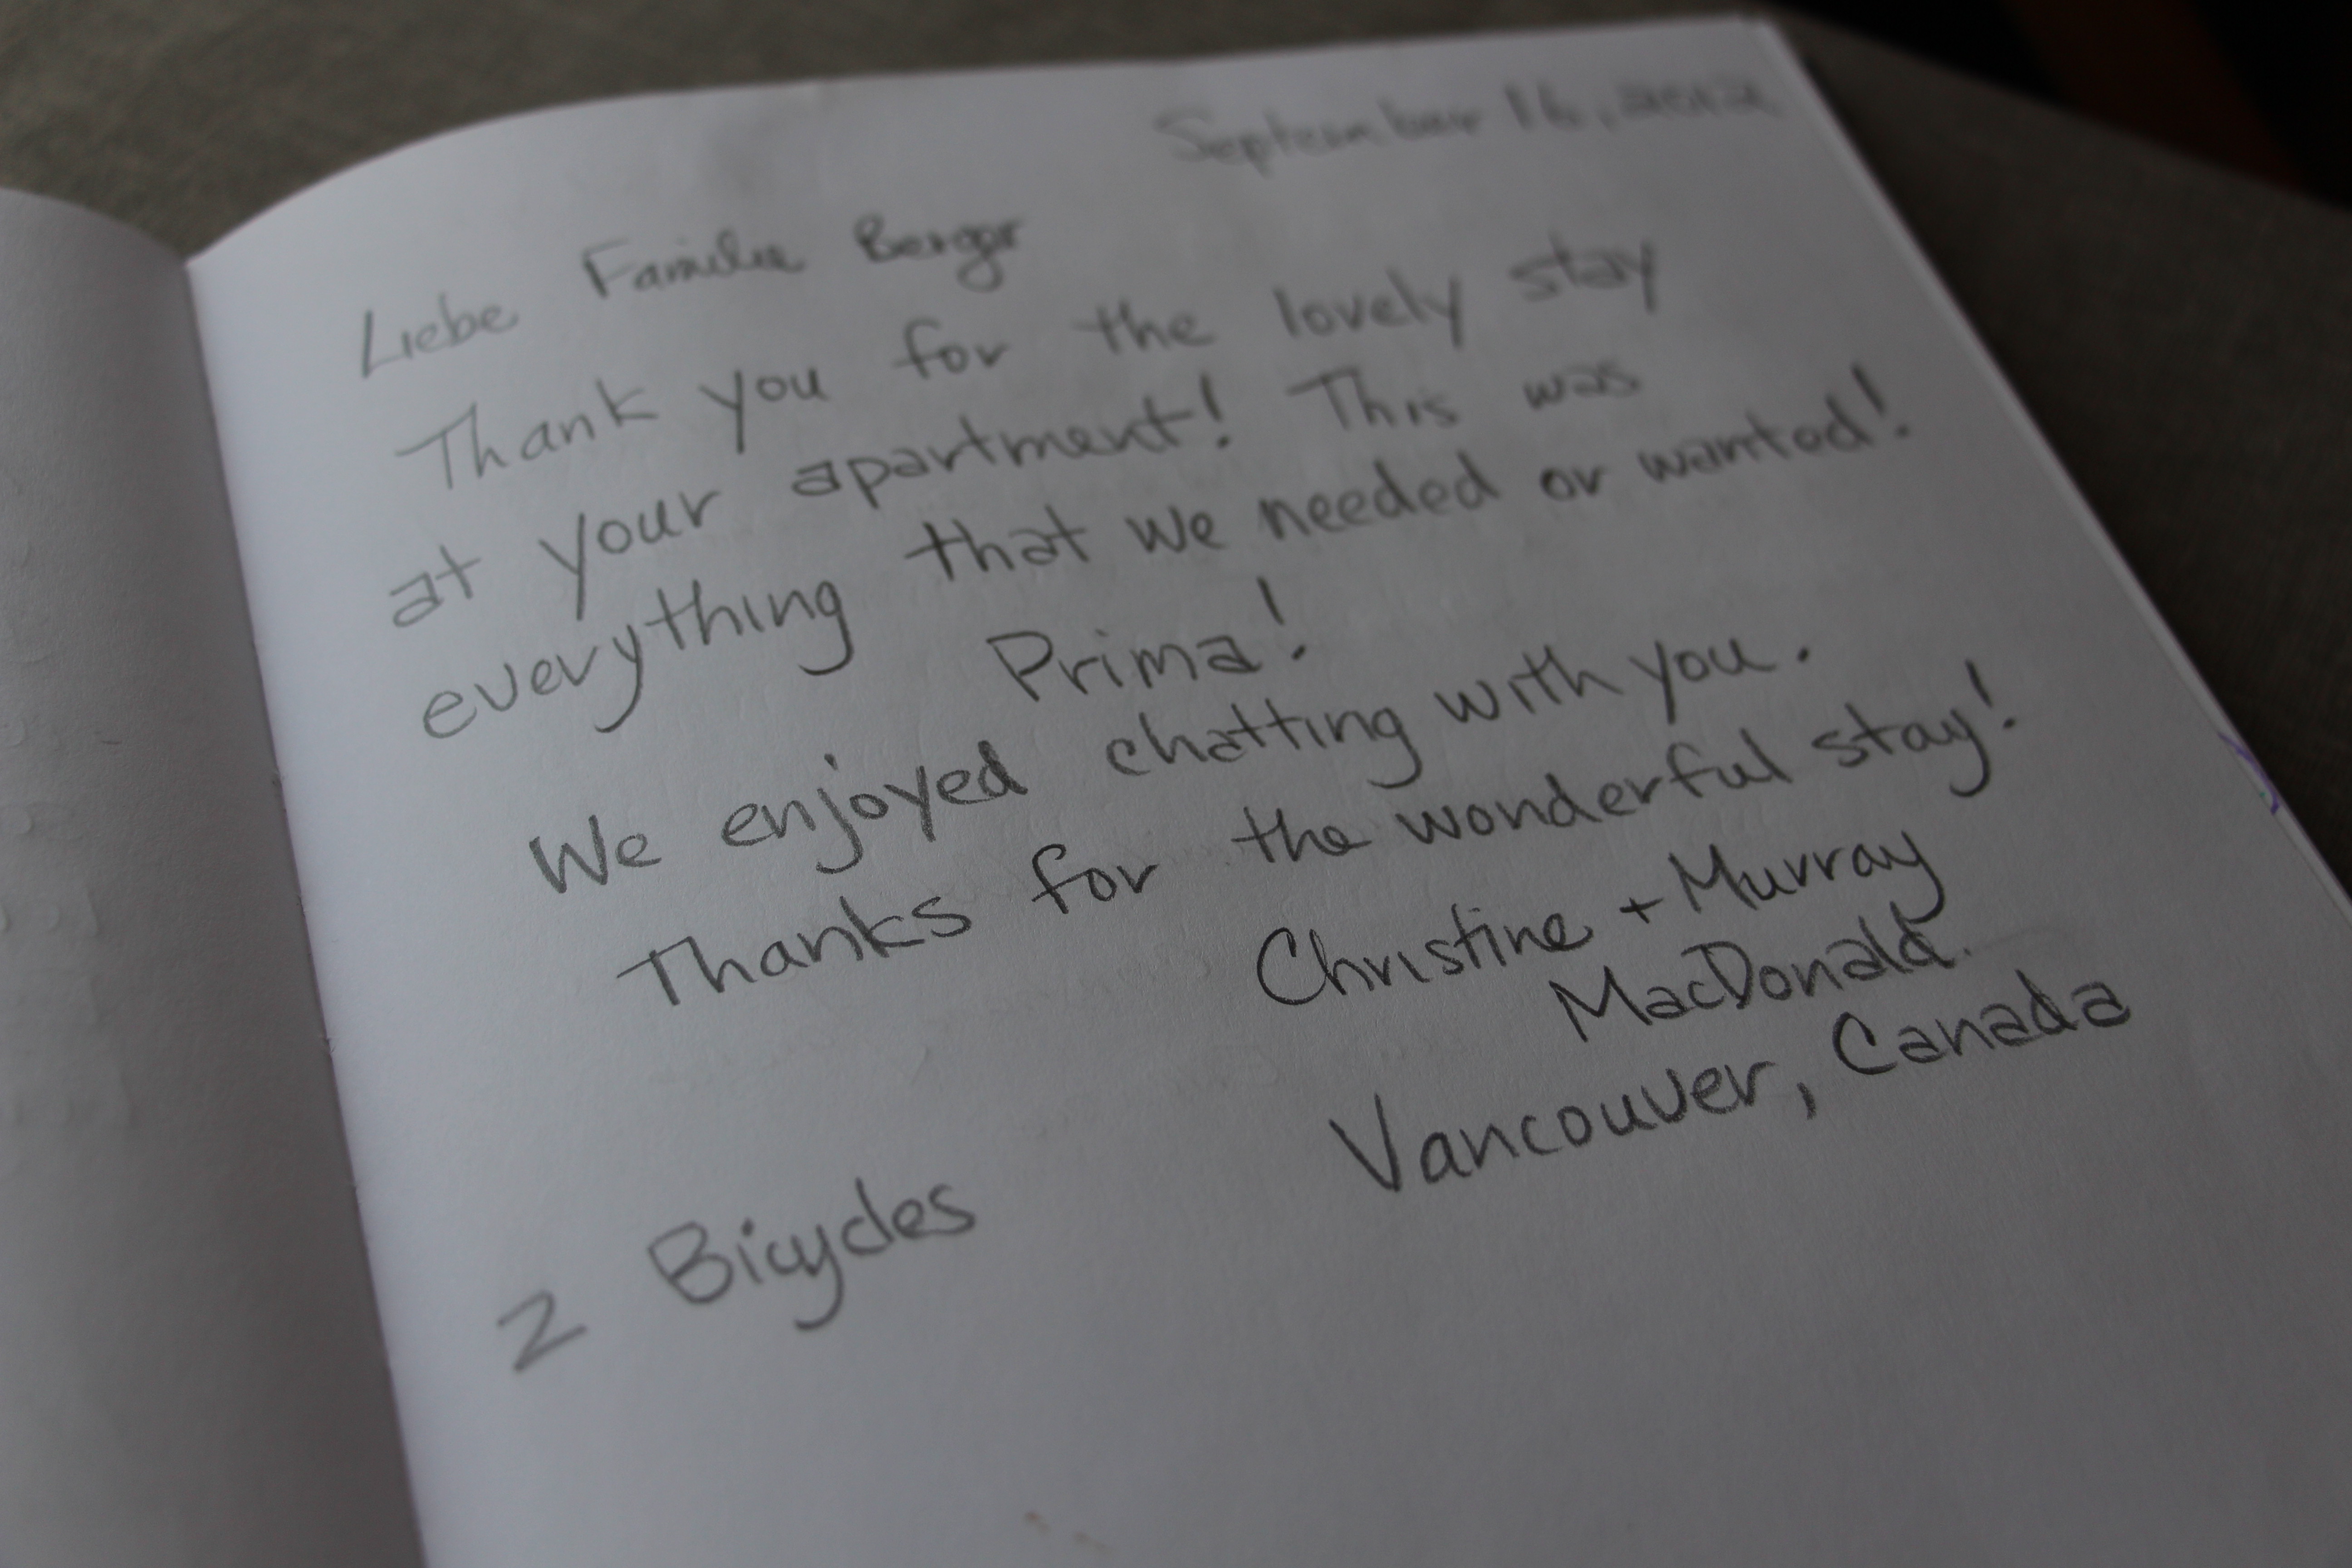 September 16, 2012
Liebe Familie Berger
Thank you for the lovely stay
at your apartment! This was
everything that we needed or wanted!
Prima!
We enjoyed chatting with you.
Thanks for the wonderful stay!
Christine + Murray
MacDonald.
Vancouver, Canada
2 Bicycles